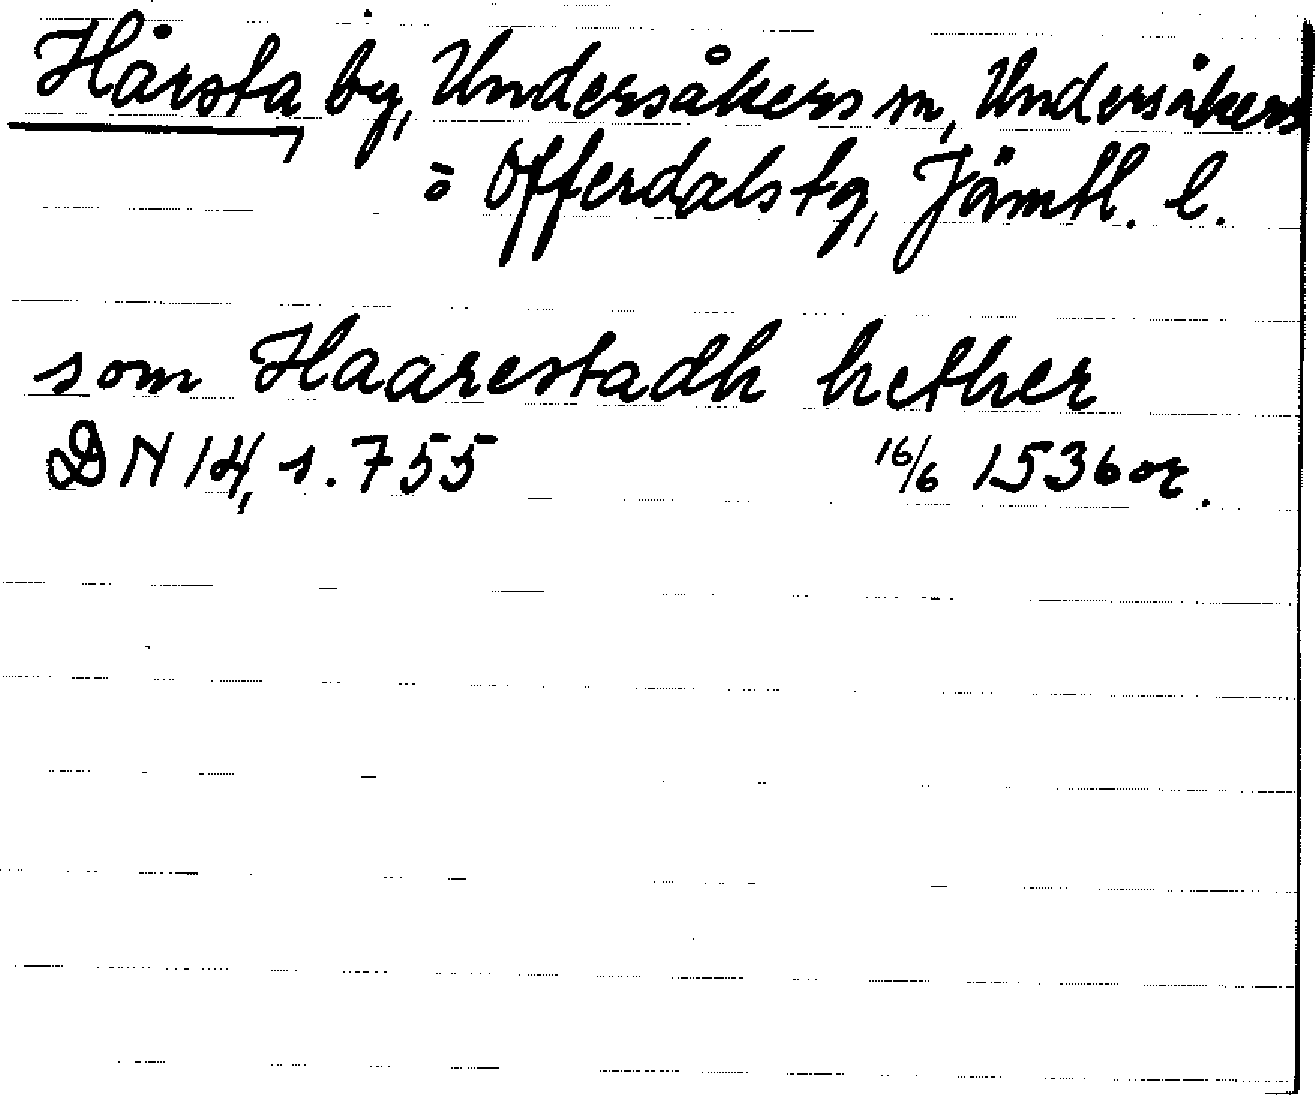 Hårsta by, Undersåkers sn, Undersåkers
o Offerdals tg, Jämtl. l.
som Haarestadh hether
DN 14, s. 755 16/6 1536 or.